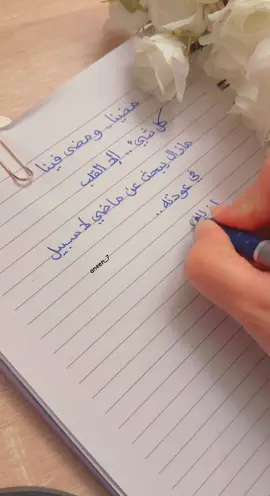 مضينا.. ومضى فينا
كل شيء.. إلا القلب
مازال يبحث عن ماضي لا سبيل
في عودته..
aneen_7